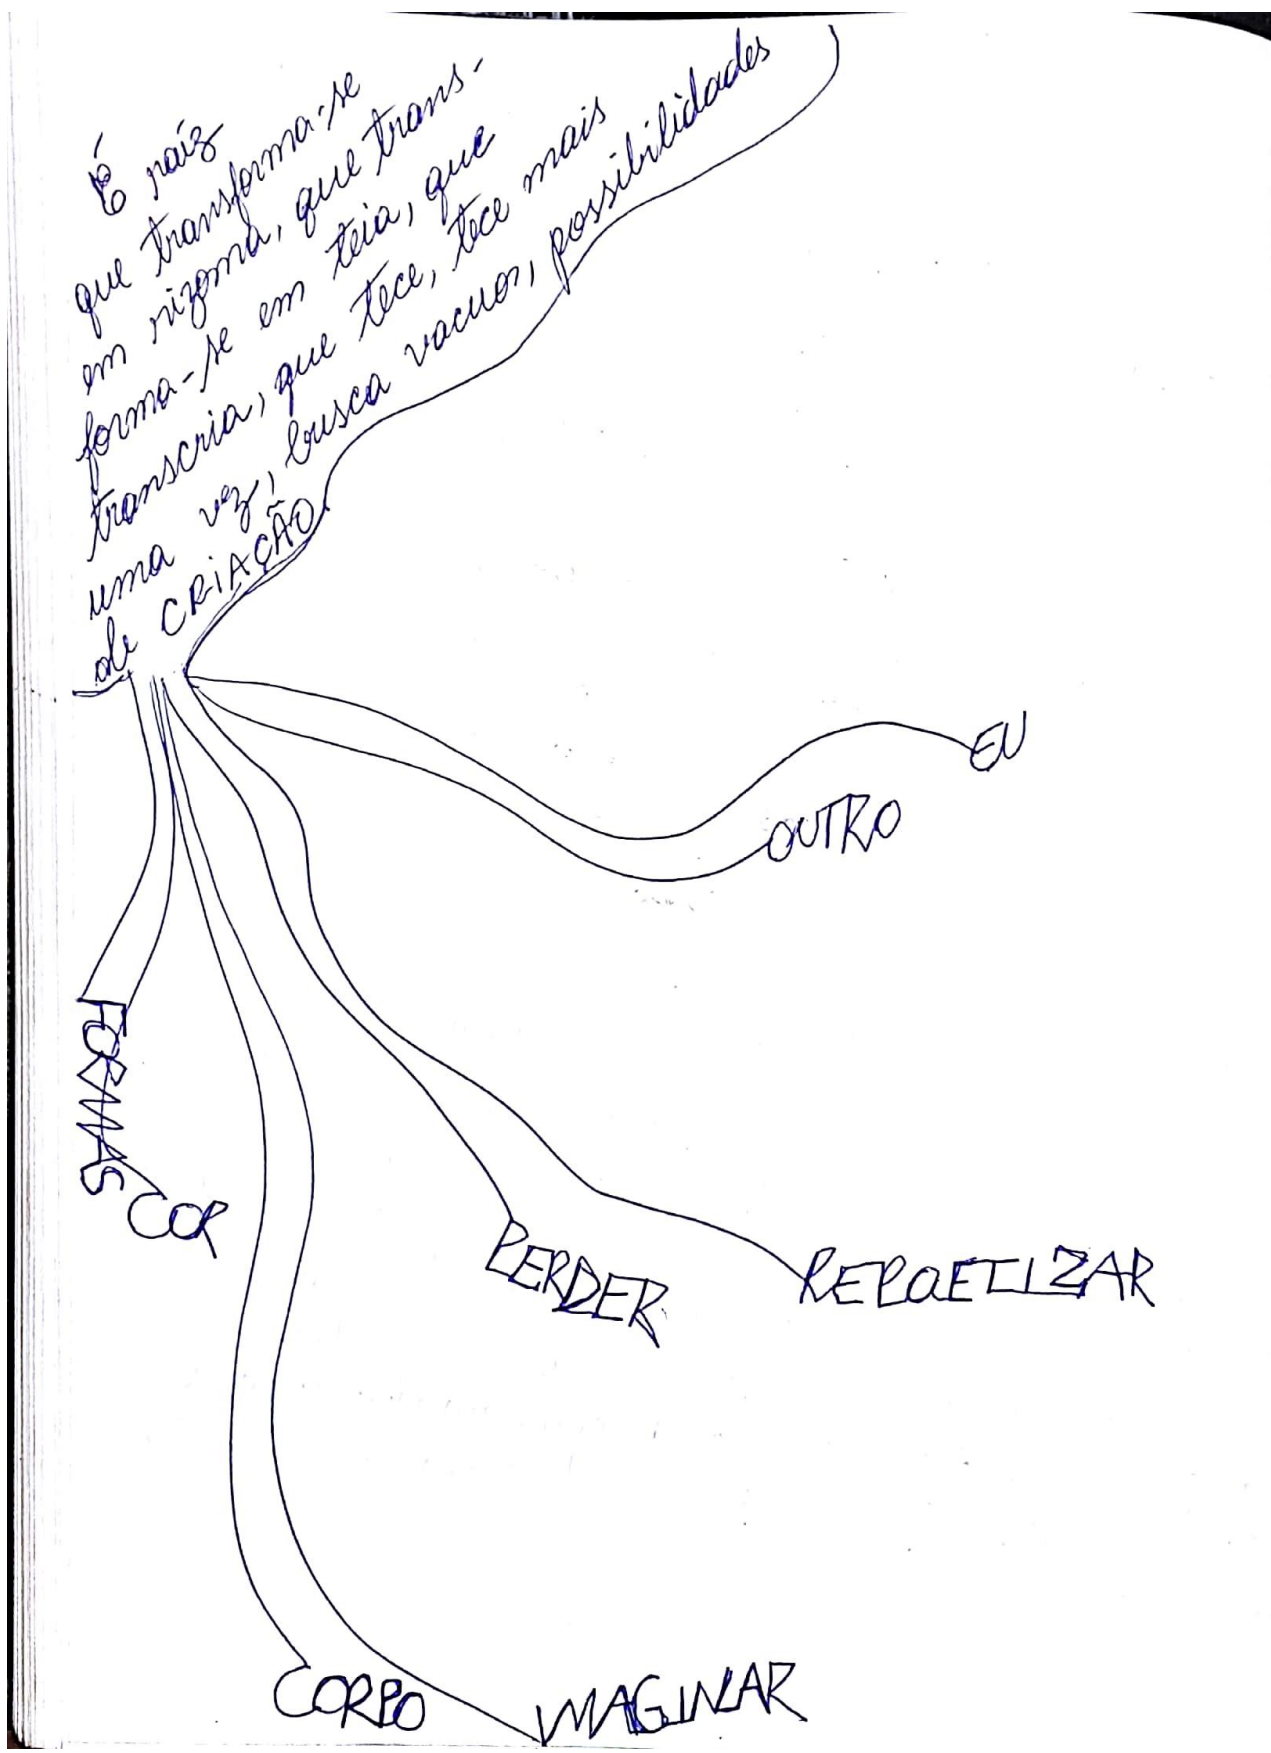 É raíz
que transforma-se
em rizoma, que trans-
forma-se em teia, que
transcria, que tece, tece mais
uma vez, busca vacuos, possibilidades
de CRIAÇÃO
EU
OUTRO
FORMAS
COR
PERDER
REPOETIZAR
CORPO
IMAGINAR